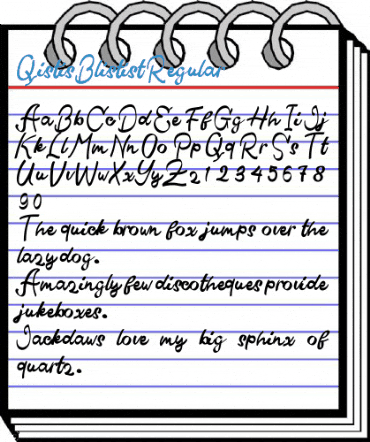 Qistis Blistist Regular
Aa Bb Cc Dd Ee Ff Gg Hh Ii Jj
Kk Ll Mm Nn Oo Pp Qq Rr Ss Tt
Uu Vv Ww Xx Yy Zz 1 2 3 4 5 6 7 8
9 0
The quick brown fox jumps over the
lazy dog.
Amazingly few discotheques provide
jukeboxes.
Jackdaws love my big sphinx of
quartz.